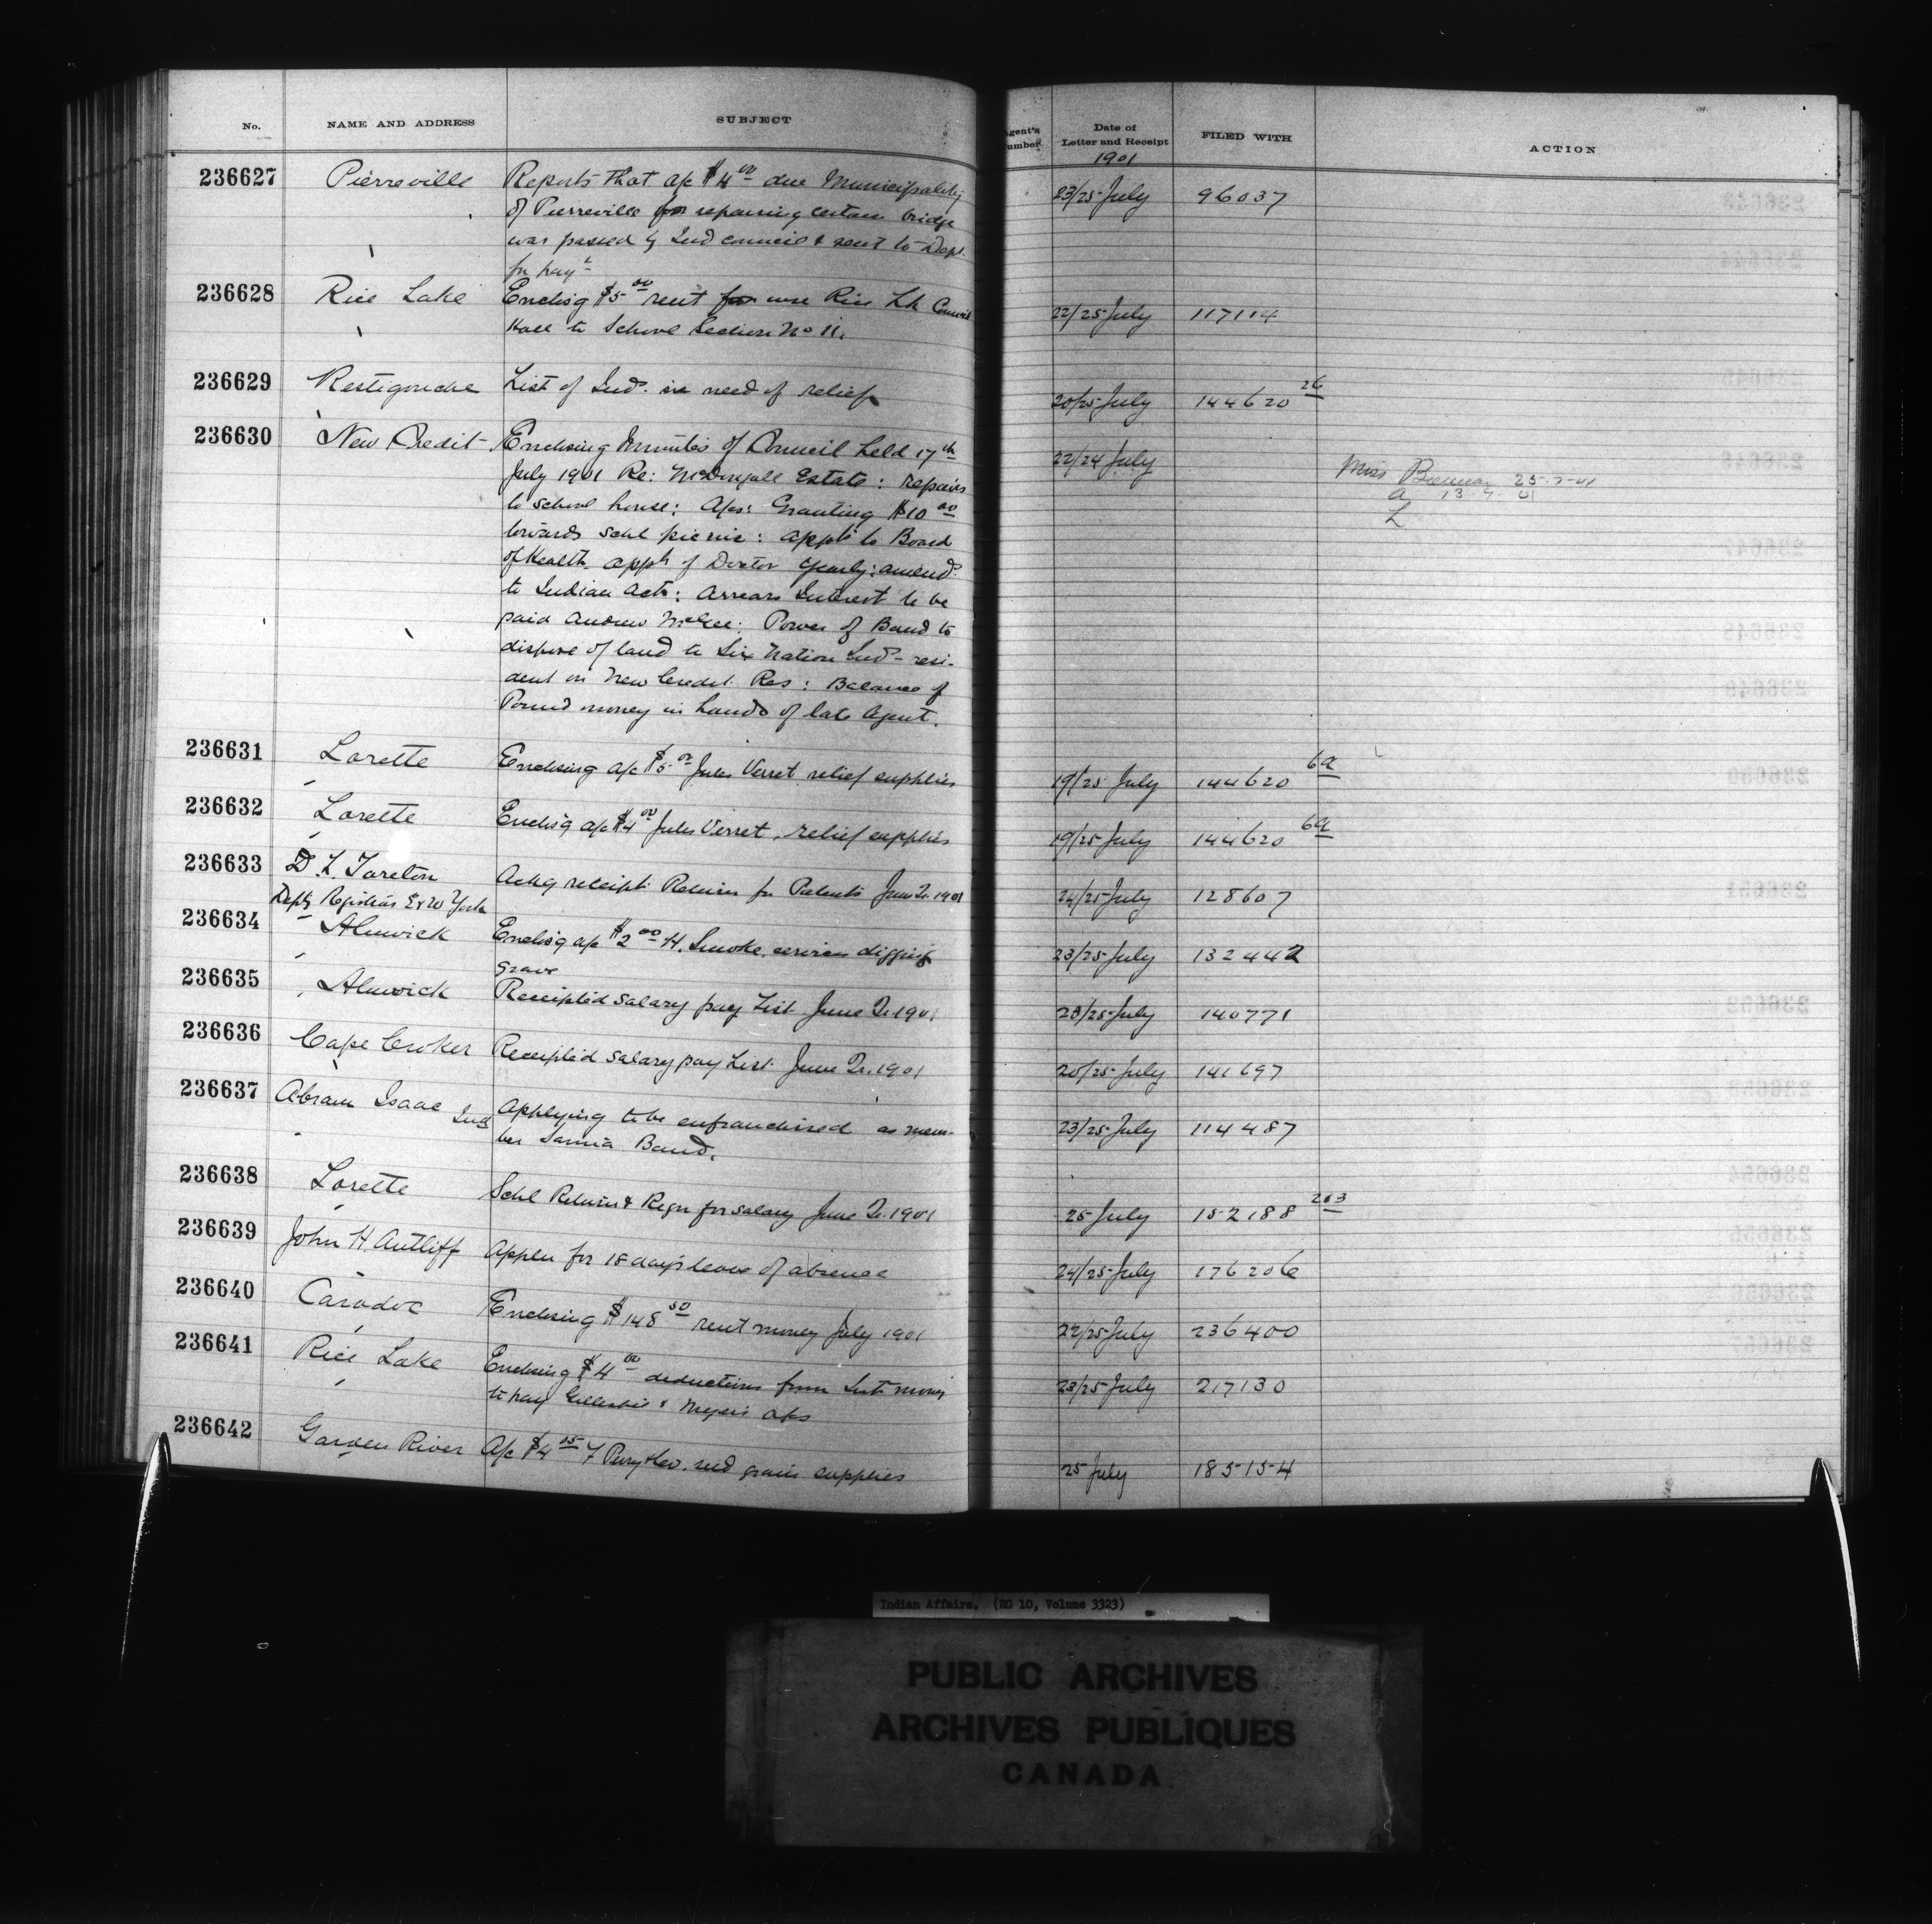 No. NAME AND ADDRESS SUBJECT Agent's Number. Date of Letter and Receipt FILED WITH ACTION
1901
236627 Pierreville Reports that a/c $4.00 due Municipality 23/25 July 96037
of Pierreville for repairing certain bridge
was passed by Ind council & sent to Dept.
for payt
236628 Rice Lake Enclos'g $5.00 rent for use Rice Lk Council 22/25 July 117114
Hall to School Section No 11.
236629 Restigouche List of Inds. in need of relief 20/25 July 144620 26
236630 New Credit Enclosing Minutes of Council held 17th 22/24 July Miss 25-7-01
July 1901 Re: McDougall Estate: repairs
to school house: A/cs: Granting $10.00
towards schl picnic: appt to Board
of Health. appt of Doctor yearly: amend.
to Indian Act: Arrears Interest to be
paid Andrew McGee: Power of Band to
dispose of land to Six Nation Inds - resi-
dent on New Credit Res: Balance of
Pound money in hands of late Agent.
236631 Lorette Enclosing a/c $5.00 Jules Verret relief supplies 19/25 July 144620 6a
236632 Lorette Enclos'g a/c $4.00 Jules Verret, relief supplies 19/25 July 144620 6a
236633 D. F. Ackg receipt Return for Patents June Qr. 1901 24/25 July 128607
Depty Registrar E & W York
236634 Alnwick Enclos'g a/c $2.00 H. Smoke services digging 23/25 July 132442
grave
236635 Alnwick Receipted salary pay List June Qr. 1901 23/25 July 140771
236636 Cape Croker Receipted salary pay List June Qr. 1901 20/25 July 141697
236637 Abram Isaac Ind Applying to be enfranchised as mem- 23/25 July 114487
ber Sarnia Band.
236638 Lorette Schl Return & Reqn for salary June Qr. 1901 25 July 152188 203
236639 John H. Autliff Appln for 18 days leave of absence 24/25 July 176206
236640 Caradoc Enclosing $148.50 rent money July 1901 22/25 July 236400
236641 Rice Lake Enclosing $4.00 deductions from Int. money 23/25 July 217130
to pay Gillespie & Meyers a/cs
236642 Garden River A/c $4.05 F Perry & Co. seed grain supplies 25 July 185154
Indian Affairs. (RG 10, Volume 3323)
PUBLIC ARCHIVES
ARCHIVES PUBLIQUES
CANADA